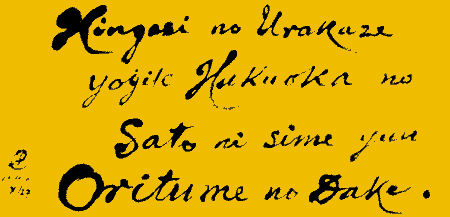 Hingasi no Urakaze
yogite Hukuoka no
Sato ni sime yuu
Oritume no Dake.